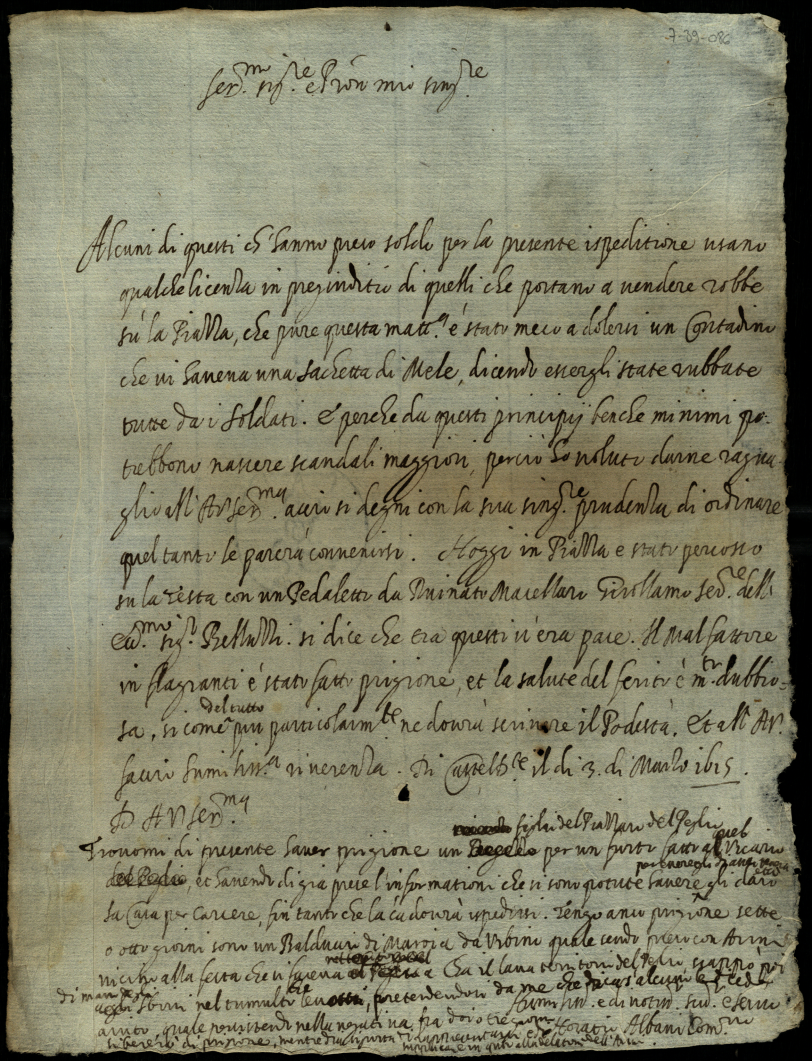 7-B9-086
Ser.mo sig.re e P'ron mio sing.re
Alcuni di questi ch' hanno preso soldo per la presente ispeditione usano
qualche licenza in pregiuditio di quelli che portano a vendere robbe
sù la Piazza, che pure questa matt.a è stato meco a dolersi un Contadino
che vi haveva una sachetta di Mele, dicendo essergli state rubbate
tutte da i soldati. E perche da questi principij benche minimi po-
trebbono nascere scandali maggiori, perciò ho voluto darne ragua-
glio all'A.V. Ser.ma acciò si degni con la sua sing.re prudenza di ordinare
quel tanto le parerà convenirsi. Hoggi in Piazza è stato percosso
su la testa con un Pedaletto da Ruinato Macellaro Girollamo ser.re dell'
sig.r Belluzzi. si dice che tra questi v'era pace. Il Malfattore
in flagranti è stato fatto prigione, et la salute del ferito è dubbio-
sa, si come del tutto più particolarm.te ne dovrà scrivere il Podestà. Et all'A.V.
faccio humiliss.a riverenza. Di il di 3. di Marzo 1615.
D. A.V. Ser.ma
Trovomi di presente haver prigione un figlio del Piazzaro del Peglio per un furto fatto al Vicario
et havendo di già prese l'informationi che si sono potute havere gli darò
la Casa per Carcere, fin tanto che la cà dovrà ispedirsi. Tengo anco prigione sette
o otto giorni sono un Balduccio di Maroia da Urbino quale sendo preso con Armi
vicino alla festa che si faceva a Cà il lava territorio del Peglio
di man degli sbirri nel tumulto, pretendendosi da me che
Humiliss. e divotiss. sud. e serv.
aiuto, quale persistendo nella negativa fra doi o tre giorni
Horatio Albani Com.rio
si libererà di prigione, mentre